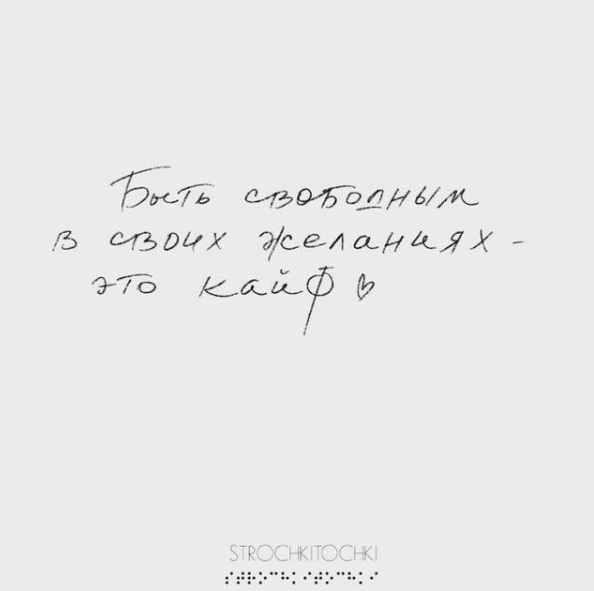 Быть свободным
в своих желаниях -
это кайф ♡
STROCHKITOCHKI
⠎⠞⠗⠕⠉⠓⠅⠊⠞⠕⠉⠓⠅⠊